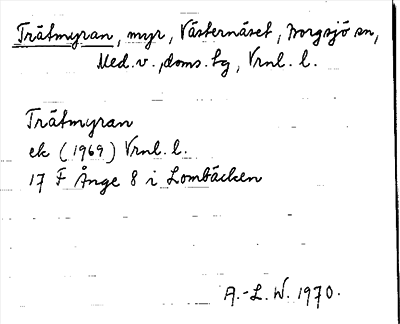 Trätmyran, myr, Västernäset, Borgsjö sn,
Med. v., doms. tg, Vrnl. l.
Trätmyran
ek (1969) Vrnl. l.
17 F Ånge 8 i Lombäcken
A.-L. W. 1970.